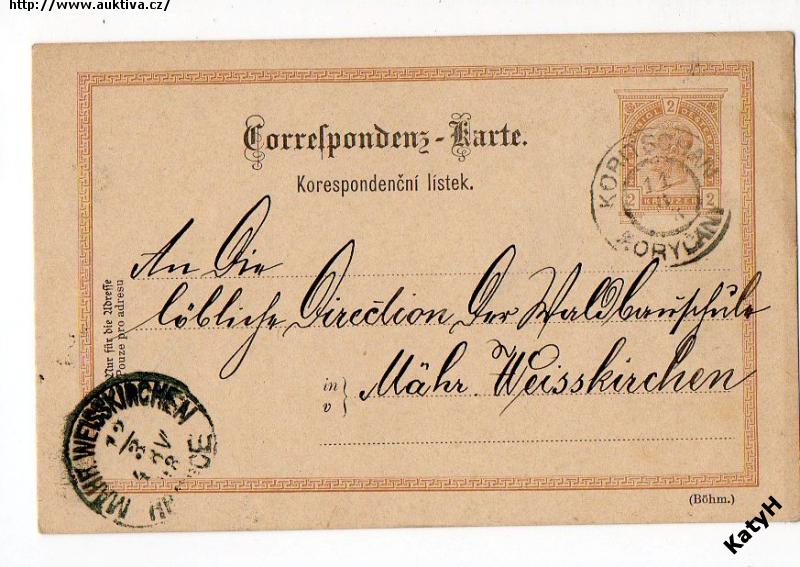 http://www.auktiva.cz/
2
2 KREUZER 2
Correspondenz-Karte.
Korespondenční lístek.
KORITSCHAN
11
KORYČAN
An Die
löbliche Direction Der Waldbauschule
in
v
Mähr. Weisskirchen
Nur für die Adresse
Pouze pro adresu
MÄHR. WEISSKIRCHEN
12/3
HRANICE
(Böhm.)
KatyH